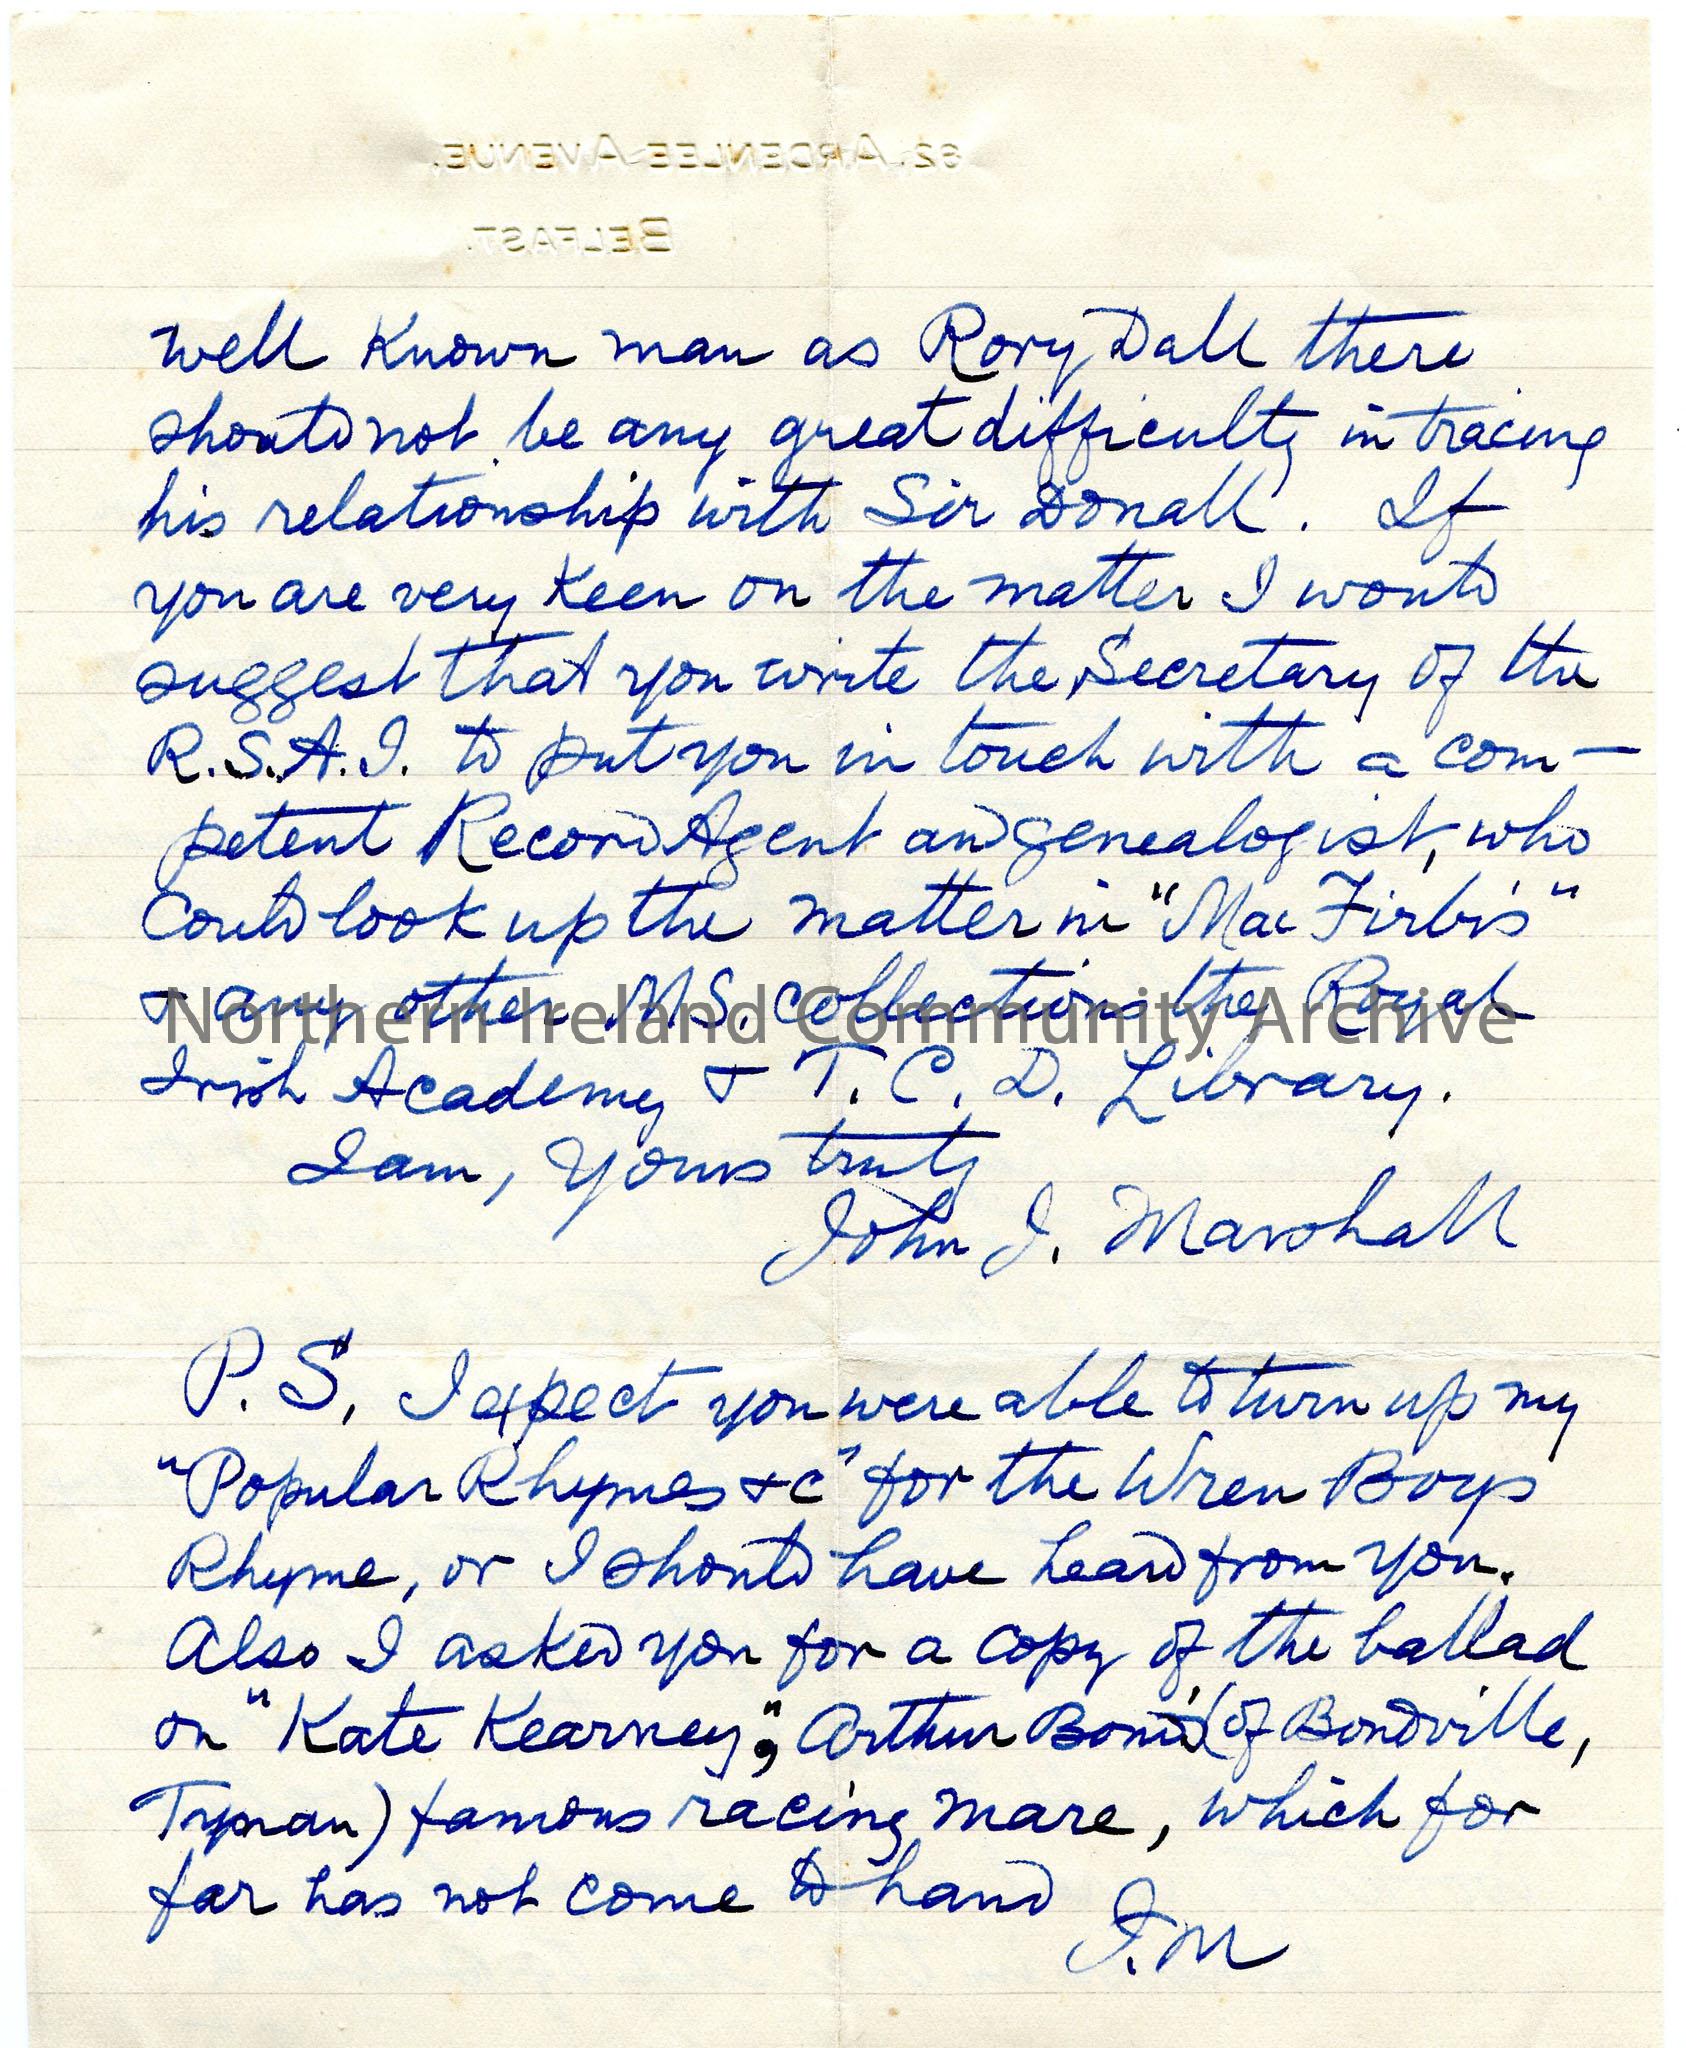 62, ARDENLEE AVENUE,
BELFAST.
well known man as Rory Dall there
should not be any great difficulty in tracing
his relationship with Sir Donall. If
you are very keen on the matter I would
suggest that you write the Secretary of the
R.S.A.I. to put you in touch with a com-
petent Record Agent and genealogist, who
could look up the matter in "Mac Firbis"
& any other MS. collections the Royal
Northern Ireland Community Archive
Irish Academy & T.C.D. Library.
I am, yours truly
John J. Marshall
P.S, I expect you were able to turn up my
"Popular Rhymes &c" for the Wren Boys
Rhyme, or I should have heard from you.
Also I asked you for a copy of the ballad
on "Kate Kearney", Arthur Bond's (of Bondville,
Tynan) famous racing mare, which for
far has not come to hand
J.M